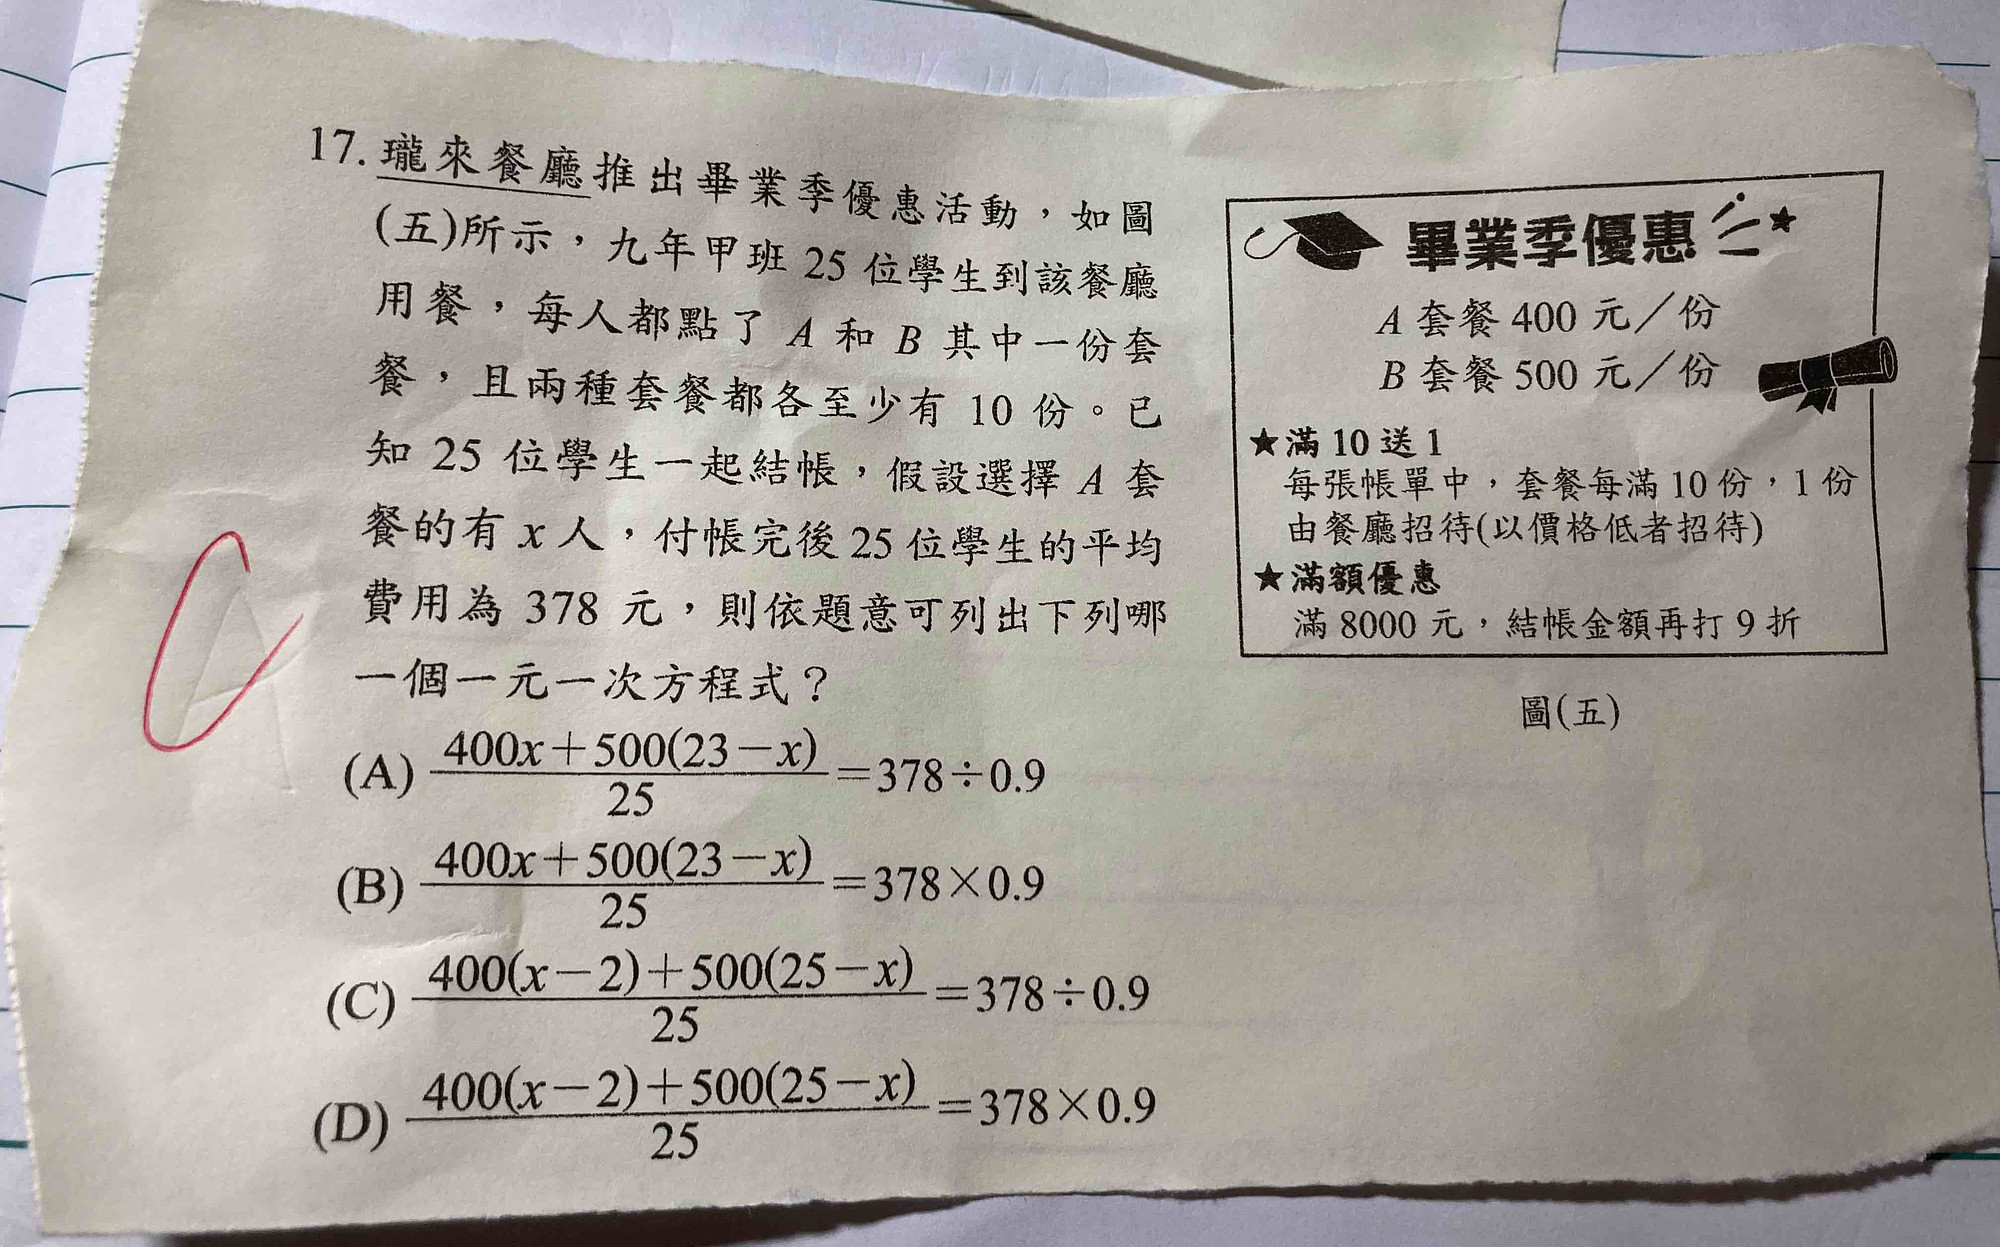 17. 瓏來餐廳推出畢業季優惠活動，如圖
(五)所示，九年甲班 25 位學生到該餐廳
用餐，每人都點了 A 和 B 其中一份套
餐，且兩種套餐都各至少有 10 份。已
知 25 位學生一起結帳，假設選擇 A 套
餐的有 x 人，付帳完後 25 位學生的平均
費用為 378 元，則依題意可列出下列哪
一個一元一次方程式？
(A) \frac{400x+500(23-x)}{25}=378÷0.9
(B) \frac{400x+500(23-x)}{25}=378×0.9
(C) \frac{400(x-2)+500(25-x)}{25}=378÷0.9
(D) \frac{400(x-2)+500(25-x)}{25}=378×0.9
畢業季優惠
A 套餐 400 元／份
B 套餐 500 元／份
★滿 10 送 1
每張帳單中，套餐每滿 10 份，1 份
由餐廳招待(以價格低者招待)
★滿額優惠
滿 8000 元，結帳金額再打 9 折
圖(五)
C